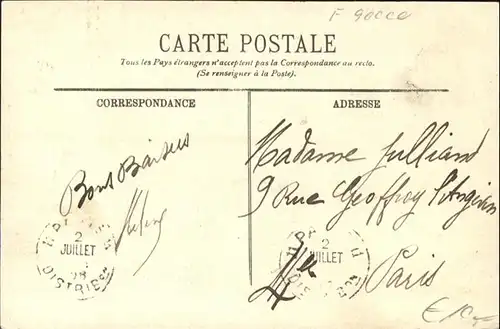 F 90000
CARTE POSTALE
Tous les Pays étrangers n'acceptent pas la Correspondance au recto.
(Se renseigner à la Poste).
CORRESPONDANCE
ADRESSE
Bons Baisers
Madame Julliand
9 Rue Geoffroy l'Angevin
4e Paris
2
JUILLET
2
DISTRIB